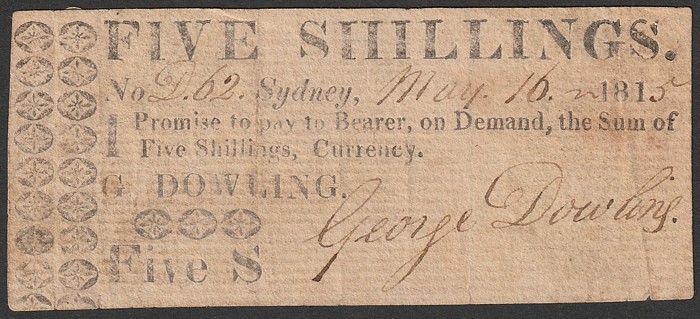 FIVE SHILLINGS.
No D.62. Sydney, May. 16. 1815
I Promise to pay to Bearer, on Demand, the Sum of
Five Shillings, Currency.
G DOWLING.
George Dowling.
Five S